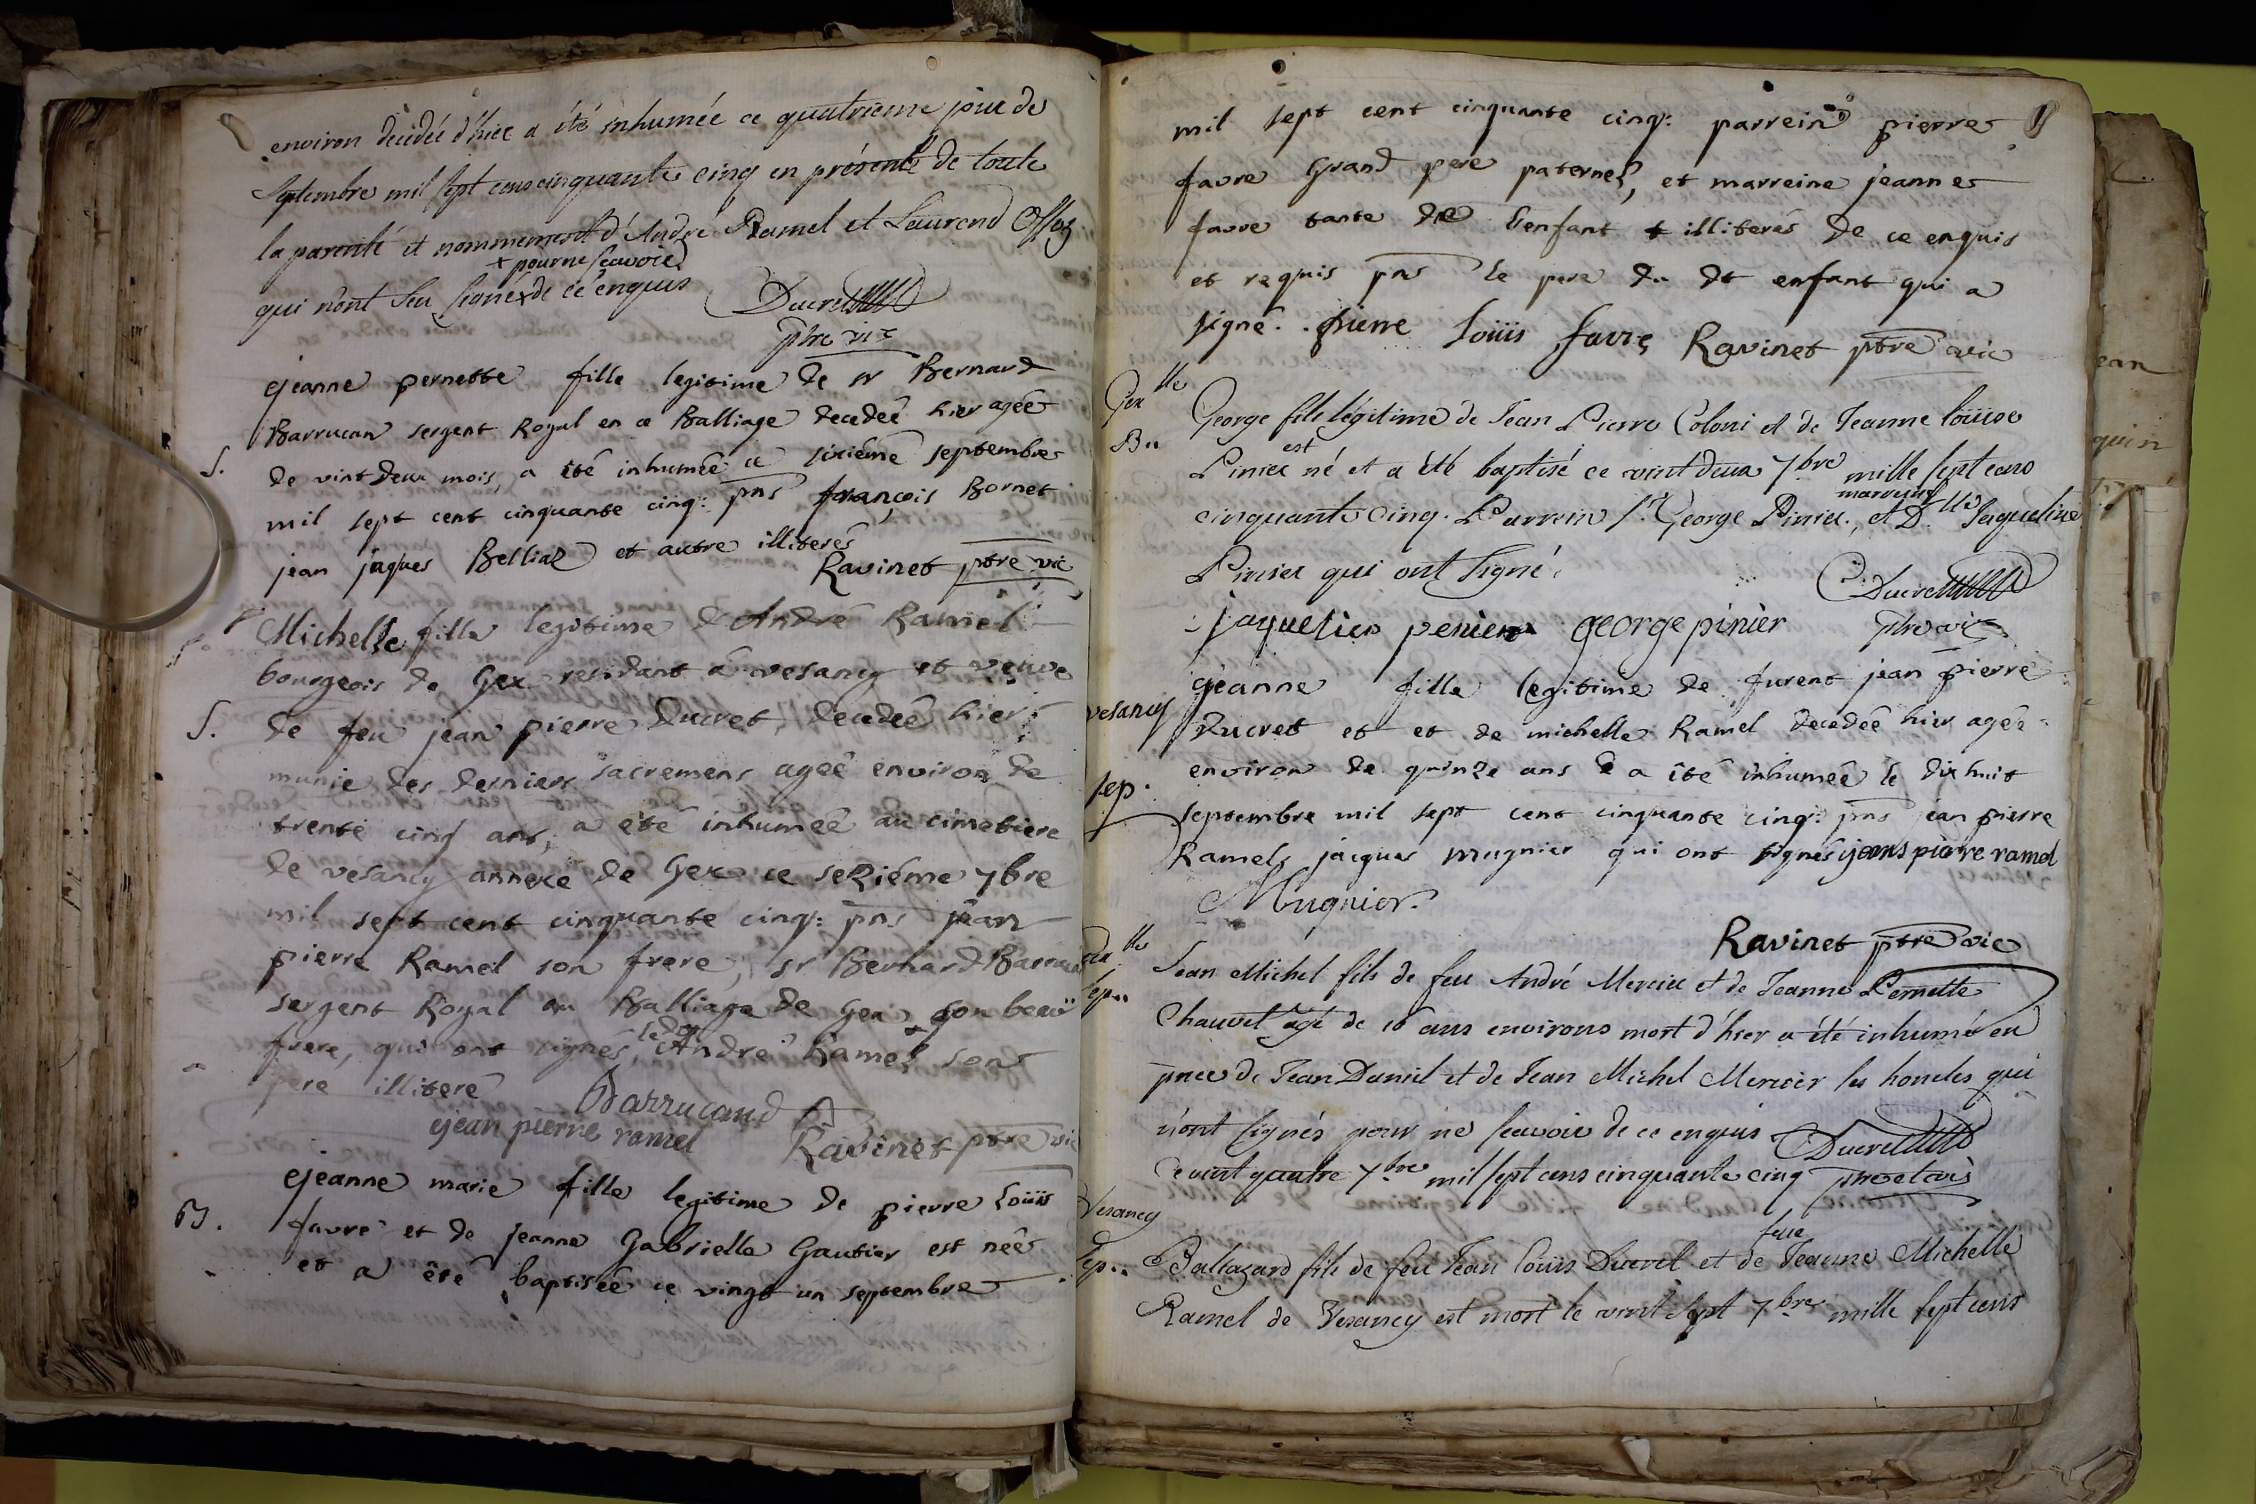 environ décédée d'hier a été inhumée ce quatrieme jour de
Septembre mil sept cens cinquante cinq en présence de toute
la parenté et nommement d'André Ramel et Laurend
+ pour ne scavoir
qui n'ont sçu signer + de ce enquis Ducret
ptre vic
jeanne pernette fille legitime de sr Bernard
Barrucan sergent Royal en ce Balliage decedeé hier ageé
S.
de vint deux mois, a été inhumeé ce sixiéme septembre
mil sept cent cinquante cinq: pns françois Bornet
jean jaques Belliaz et autre illiterés
Ravinet ptre vic
Michelle fille legitime d'André Ramel
bourgeois de Gex residant á vesancy et veuve
S.
de feu jean pierre Ducret, decedeé hier
munie des derniers sacremens ageé environ de
trente cinq ans, a eté inhumeé au cimetiere
de vesancy annexe de Gex ce seziéme 7bre
mil sept cent cinquante cinq: pns jean
pierre Ramel son frere, sr Bernard Barrucan
sergent Royal au Balliage de Gex son beau
frere, qui ont signés, le dt André Ramel son
pere illiteré Barrucand
jean pierre ramel Ravinet ptre vic
jeanne marie fille legitime de pierre Loüis
B.
favre et de jeanne Gabrielle Gautier est neé
et a êté baptisée ce vingt un septembre
mil sept cent cinquante cinq: parrein pierre
favre Grand pere paternel, et marreine jeanne
favre tante de l'enfant illiterés de ce enquis
et requis pns le pere du dt enfant qui a
signé. pierre loüis favre Ravinet ptre vic
Gex lle
George fils légitime de Jean Pierre Coloni et de Jeanne loüise
B..
est
Pinier né et a été baptisé ce vint deux 7bre mille sept cens
marreine
cinquante cinq. Parrein sr. George Pinier, et Dlle Jaqueline
Pinier qui ont signé.
Ducret
penier george pinier ptre vic
jeanne fille legitime de furent jean pierre
vesancy
Ducret et et de michelle Ramel decedeé hier ageé
environ de quinze ans a êté inhumeé le dix huit
sep.
septembre mil sept cent cinquante cinq: pns jean pierre
Ramel, jacques mugnier qui ont signés jean pierre ramel
Mugnier.
Ravinet ptre vic
Gex lle
Jean Michel fils de feu André Mercier et de Jeanne Pernette
Sep..
Chauvet âgé de 16 ans environs mort d'hier a été inhumé en
pnce de Jean Daniel et de Jean Michel Mercier ses honcles qui
n'ont signés pour ne scavoir de ce enquis Ducret
ce vint quatre 7bre mil sept cens cinquante cinq ptre et vic
Vesancy
feue
Sep..
Baltazard fils de feu Jean loüis Ducret et de Jeanne Michelle
Ramel de Vesancy est mort le vint sept 7bre mille sept cens